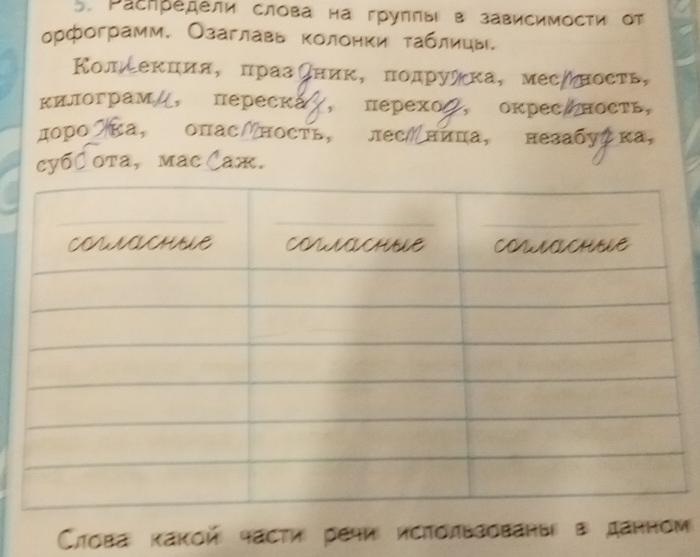 5. Распредели слова на группы в зависимости от
орфограмм. Озаглавь колонки таблицы.
Коллекция, праздник, подружка, местность,
килограмм, пересказ, переход, окрестность,
дорожка, опастность, лестница, незабудка,
суббота, массаж.
согласные согласные согласные
Слова какой части речи использованы в данном